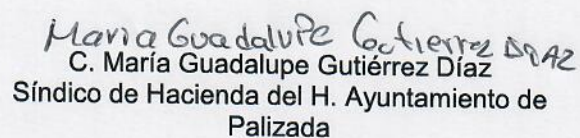 Maria Guadalupe Gutierrez DIAZ
C. María Guadalupe Gutiérrez Díaz
Síndico de Hacienda del H. Ayuntamiento de
Palizada